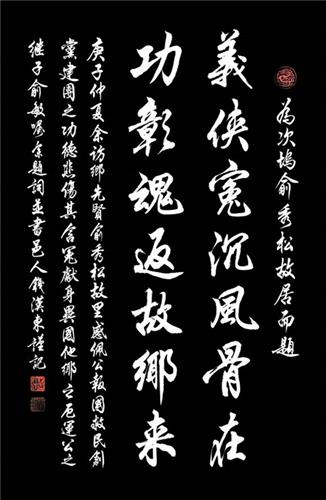 為次塢俞秀松故居而題
義俠冤沉風骨在
功彰魂返故鄉来
庚子仲夏余訪鄉先賢俞秀松故里感佩公報國救民創
黨建團之功德悲傷其含冤獻身異國他鄉之厄運公之
继子俞敏囑余題詞並書邑人錢漢東謹記